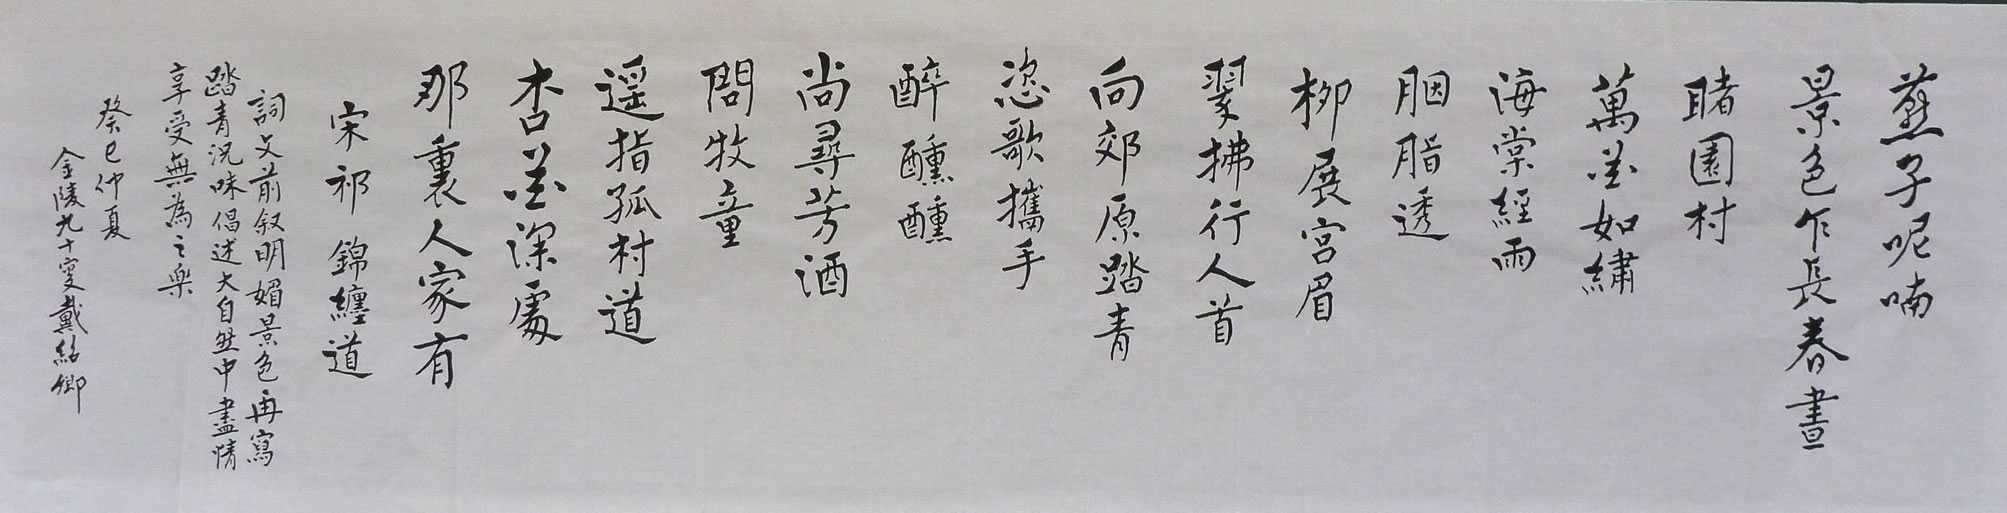 燕子呢喃
景色乍長春晝
睹園村
萬花如繡
海棠經雨
胭脂透
柳展宮眉
翠拂行人首
向郊原踏青
恣歌攜手
醉醺醺
尚尋芳酒
問牧童
遥指孤村道
杏花深處
那裏人家有
宋祁 錦纏道
詞文前叙明媚景色再寫
踏青況味倡述大自然中盡情
享受無為之樂
癸巳仲夏
金陵九十叟戴紹卿